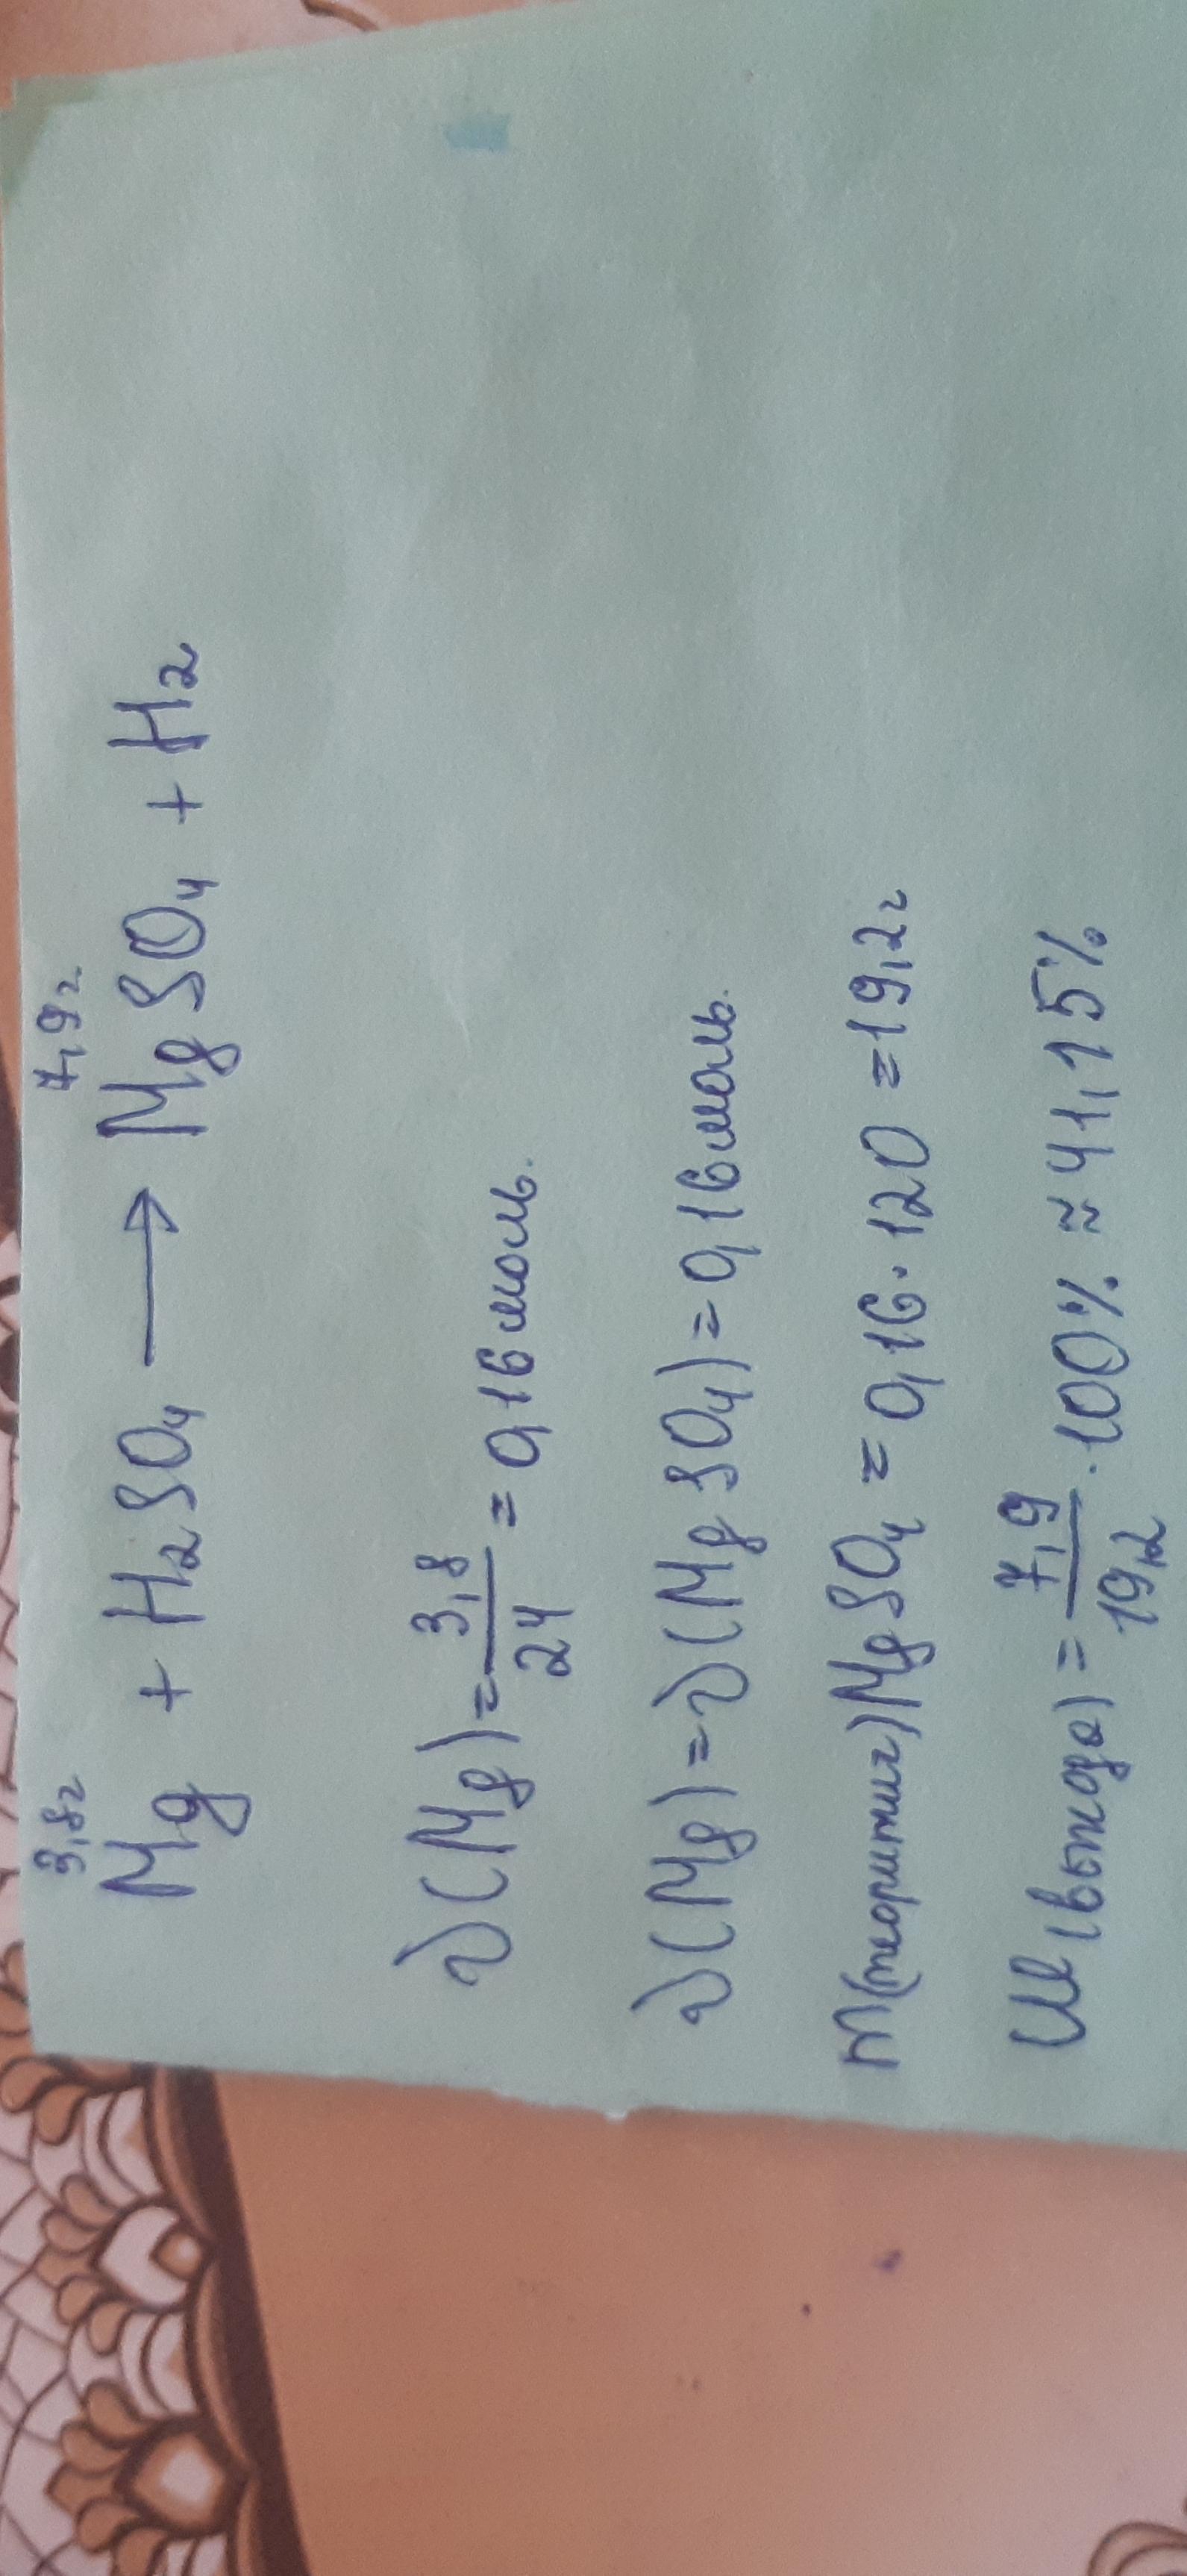 3,8г 7,9г
Mg + H₂SO₄ → MgSO₄ + H₂
ν(Mg) = 3,8/24 = 0,16 моль.
ν(Mg) = ν(MgSO₄) = 0,16 моль.
m(теоритич) MgSO₄ = 0,16 · 120 = 19,2г
W(выхода) = 7,9/19,2 · 100% ≈ 41,15%